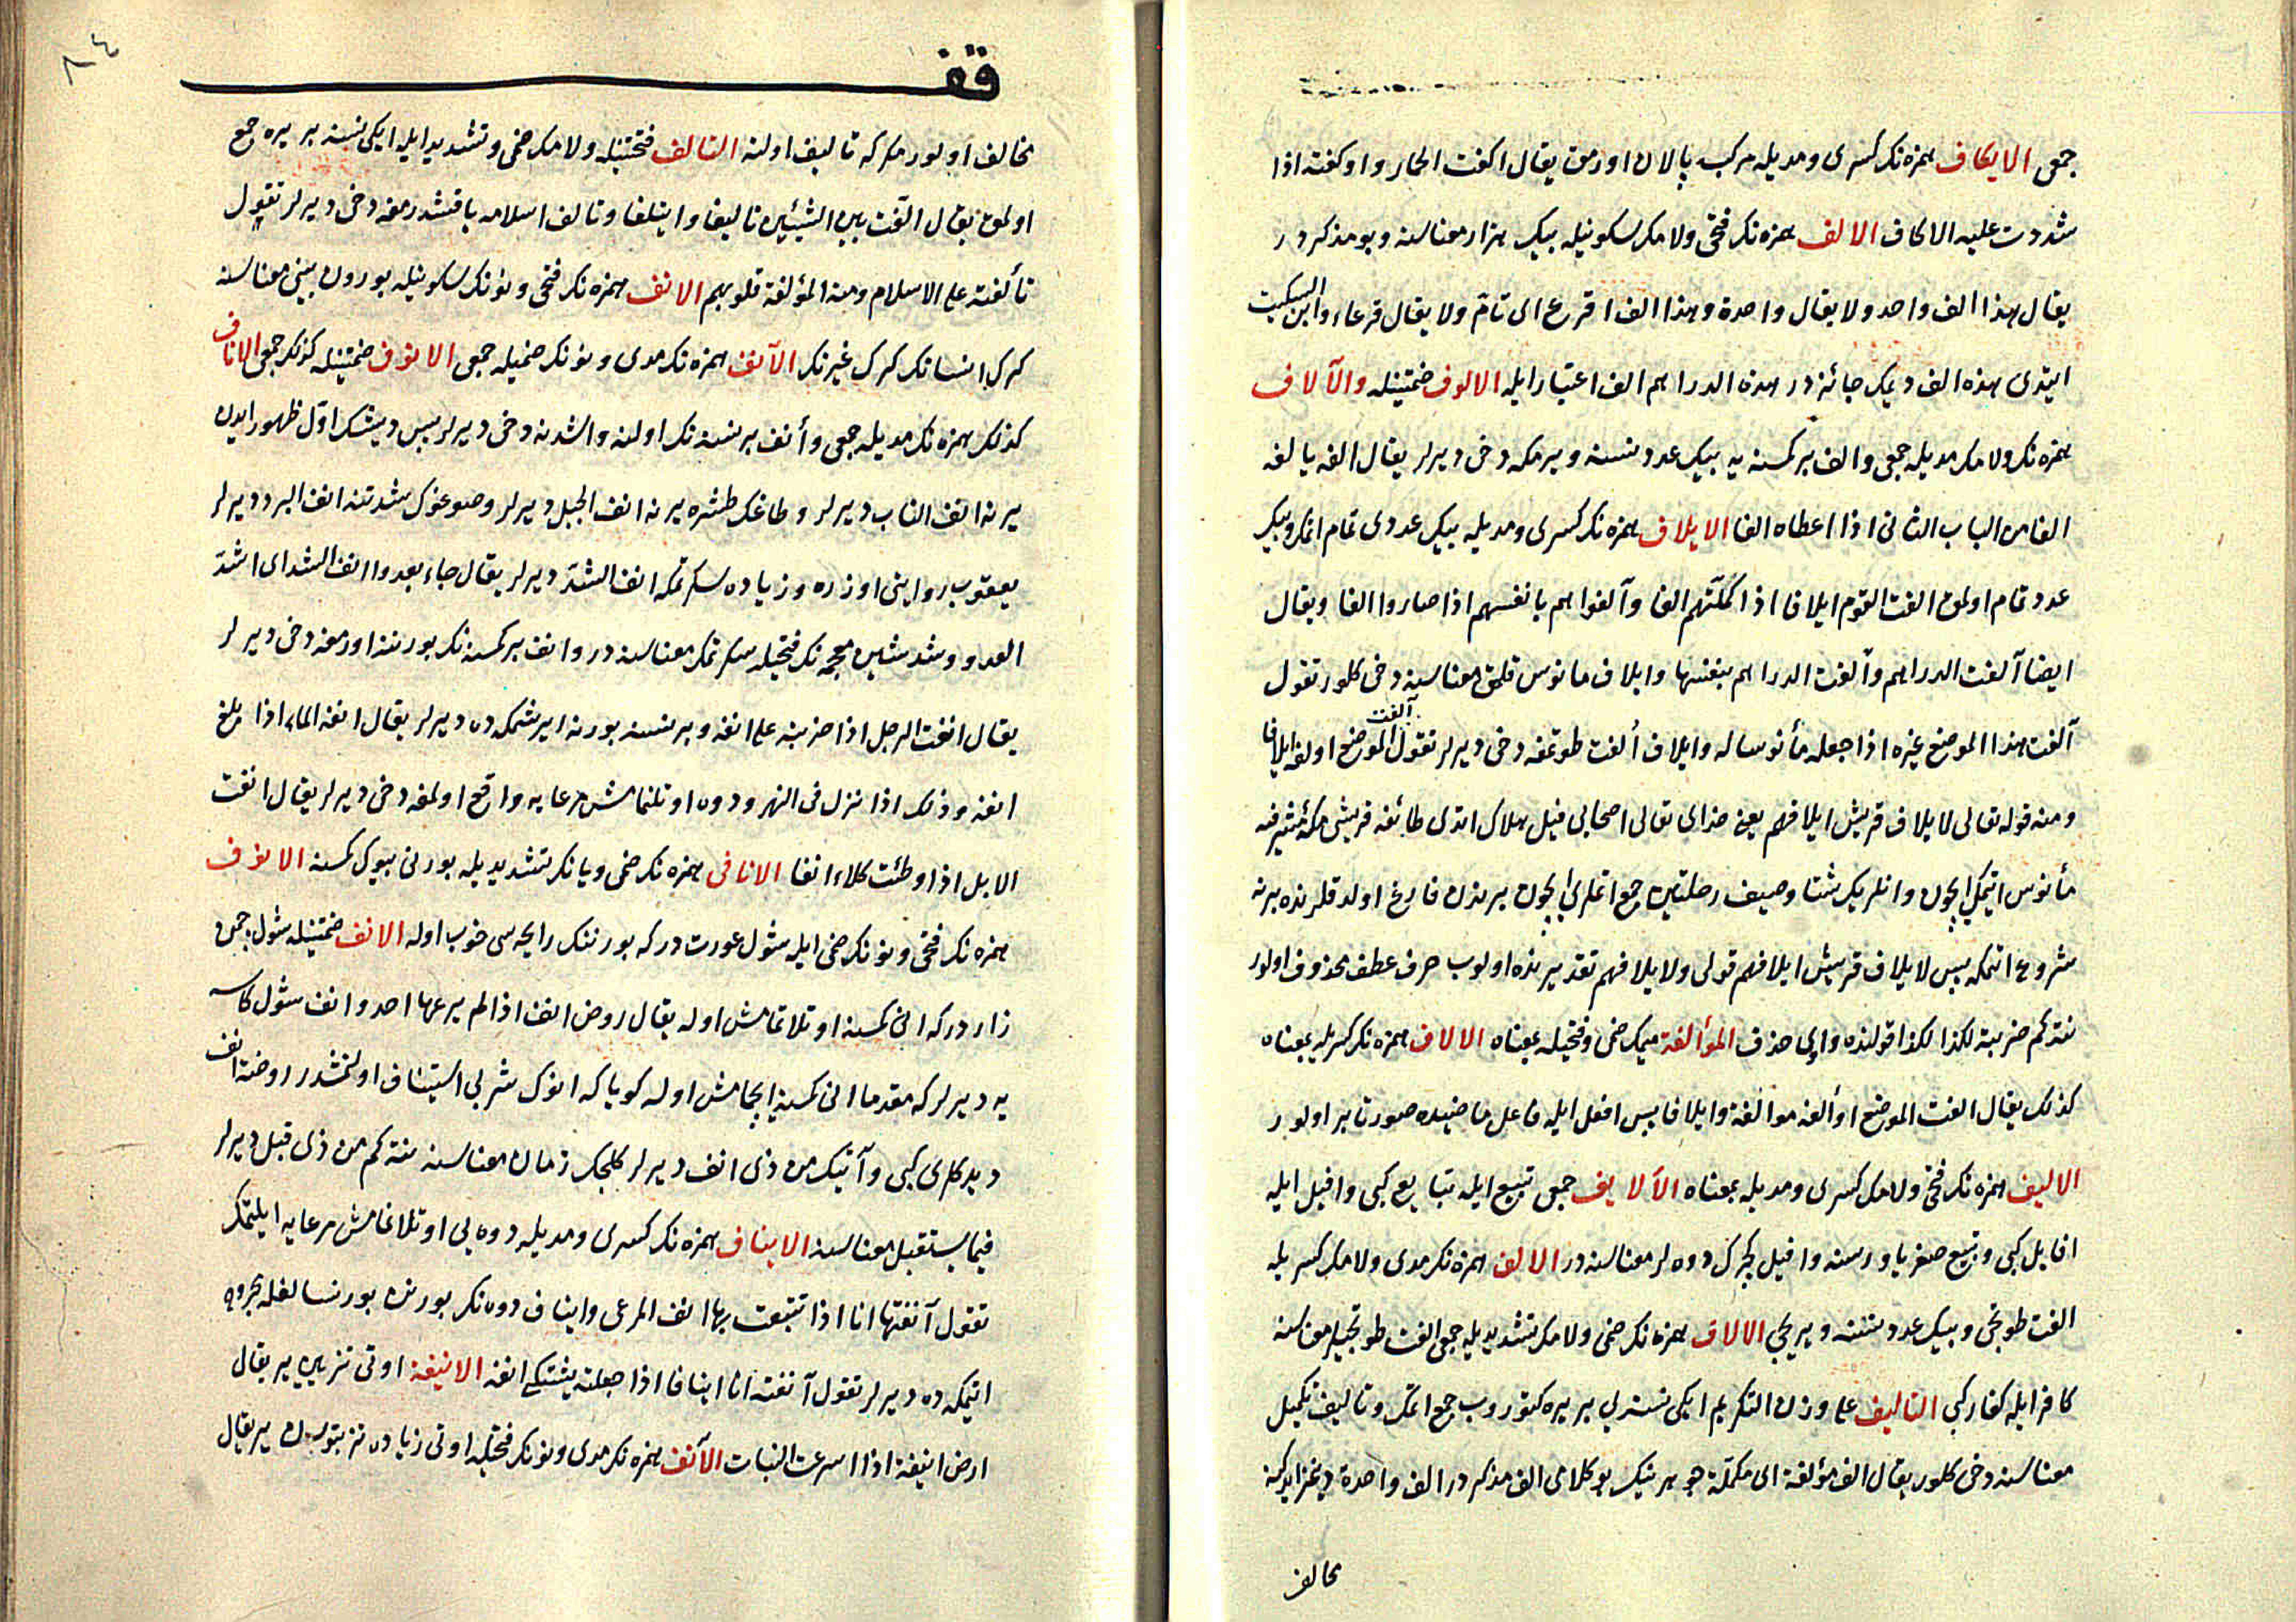 جمعى الايكاف همزه نك كسرى ومديله مركبه پالان اورمق يقال اكفت الحمار واوكفته اذا
شددت عليه الاكاف الالف همزه نك فتحى ولامك سكونيله بيك هزار معناسنه وبو مذكر در
يقال هذا الف واحد ولا يقال واحدة وهذا الف اقرع اى تام ولا يقال قرعاء وابن السكيت
ايتدى هذه الف ديمك جائزدر هذه الدراهم الف اعتبار ايله الالوف ضمتينله والآلاف
همزه نك ولامك مديله جمعى والف بر كمسنه يه بيك عدد نسنه ويرمكه دخى ديرلر يقال الفه يالفه
الفا من الباب الثانى اذا اعطاه الفا الايلاف همزه نك كسرى ومديله بيك عددى تمام اتمك وبيك
عدد تمام اولمق الفت القوم ايلافا اذا كملتهم الفا وآلفوا هم بانفسهم اذا صاروا الفا ويقال
ايضا آلفت الدراهم وآلفت الدراهم بنفسها وايلاف مانوس قلمق معناسنه دخى كلور تقول
آلفت هذا الموضع غيره اذا جعله مأنوسا له وايلاف ألفت طوتمغه دخى ديرلر تقول آلفت الموضع اولفه ايلافا
ومنه قوله تعالى لايلاف قريش ايلافهم يعنى خداى تعالى اصحابى فيل هلاك اتدى طائفه قريشى مكه مشرفه
مأنوس ايتمك ايچون وانلريك شتا وصيف رحلتين جمع اتملرى ايچون برندن فارغ اولدقلرنده برنه
شروع اتمكه پس لايلاف قريش ايلافهم قولى ولايلافهم تقديرنده اولوب حرف عطف محذوف اولور
نته كم ضربته لكذا لكذا قولنده واوى حذف المؤالفة ميمك ضمى وفتحيله بمعناه الالاف همزه نك كسريله بمعناه
كذلك يقال الفت الموضع اوألفه موالفة وايلافا پس افعل ايله فاعل ماضيده صورتا بر اولور
الاليف همزه نك فتحى ولامك كسرى ومديله بمعناه الألايف جمعى تبيع ايله تبايع كبى وافيل ايله
افايل كبى وتبيع صغر ياوروسنه وافيل كچرك دوه لر معناسنه در الالف همزه نك مدى ولامك كسريله
الفت طوتجى وبيك عدد نسنه ويريجى الالاف همزه نك ضمى ولامك تشديديله جمعى الفت طوتجيلر معناسنه
كافر ايله كفار كبى التاليف على وزن التكريم ايكى نسنه لى بر يره كتوروب جمع اتمك وتاليف تكميل
معناسنه دخى كلور يقال الف مؤلفة اى مكملة جوهرينك بو كلامى الف مذكر در الف واحدة ديمز ايدكنه
مخالف
قف
٨٤
مخالف اولور مكر كه تاليف اولنه التالف فتحتينله ولامك ضمى وتشديد ايله ايكى نسنه بر يره جمع
اولمق يقال الّفت بين الشيئين تاليفا وايتلفا وتالف اسلامه ياقتشدرمغه دخى ديرلر تقول
تألفته على الاسلام ومنه المؤلفة قلوبهم الانف همزه نك فتحى ونونك سكونيله بورون بينى معناسنه
كرك انسانك كرك غيرنك الآنف همزه نك مدى ونونك ضميله جمعى الانوف ضمتينله كذلك جمعى الاناف
كذلك همزه نك مديله جمعى وأنف بر نسنه نك اولنه واشدنه دخى ديرلر پس ديشك اول ظهور ايدن
يرنه انف الناب ديرلر وطاغك طشره يرنه انف الجبل ديرلر وصوغوك شدتنه انف البرد ديرلر
يعقوب روايتى اوزره وزياده سكرتمكه انف الشد ديرلر يقال جاء يعدو انف الشد اى اشد
العدو وشد شين معجمه نك فتحيله سكرتمك معناسنه در وانف بر كمسنه نك بورننه اورمغه دخى ديرلر
يقال انفت الرجل اذا ضربته على انفه وبر نسنه بورنه ايرشمكده ديرلر يقال انفه الماء اذا بلغ
انفه وذلك اذا نزل فى النهر ودوه اوتلنمامش مرعايه واقع اولمغه دخى ديرلر يقال انفت
الابل اذا وطئت كلاء انفا الانافى همزه نك ضمى ويانك تشديديله بورنى بيوك كمسنه الانوف
همزه نك فتحى ونونك ضمى ايله شول عورت در كه بورننك رايحه سى خوب اوله الانف ضمتينله شول چمن
زار در كه انى كمسنه اوتلاتمامش اوله يقال روض انف اذا لم يرعها احد وانف شول كاسه
يه ديرلر كه مقدما انى كمسنه ايچمامش اوله كويا كه انوك شربى استيناف اولنمشدر روضة انف
ديدكلرى كبى وآتيك من ذى انف ديرلر كلجك زمان معناسنه نته كم من ذى قبل ديرلر
فيما يستقبل معناسنه الايناف همزه نك كسرى ومديله دوه يى اوتلانمامش مرعايه ايلتمك
تقول آنفتها انا اذا تتبعت بها انف المرعى وايناف دوه نك بورنن بورنسالغله مجروح
اتيمكه ده ديرلر تقول آنفته انا ايناف اذا جعلته يشتكى انفه الانيفة اوتى تيز بتن ير يقال
ارض انيفة اذا اسرعت النبات الآنف همزه نك مدى ونونك فتحيله اوتى زياده تز بتورن ير يقال